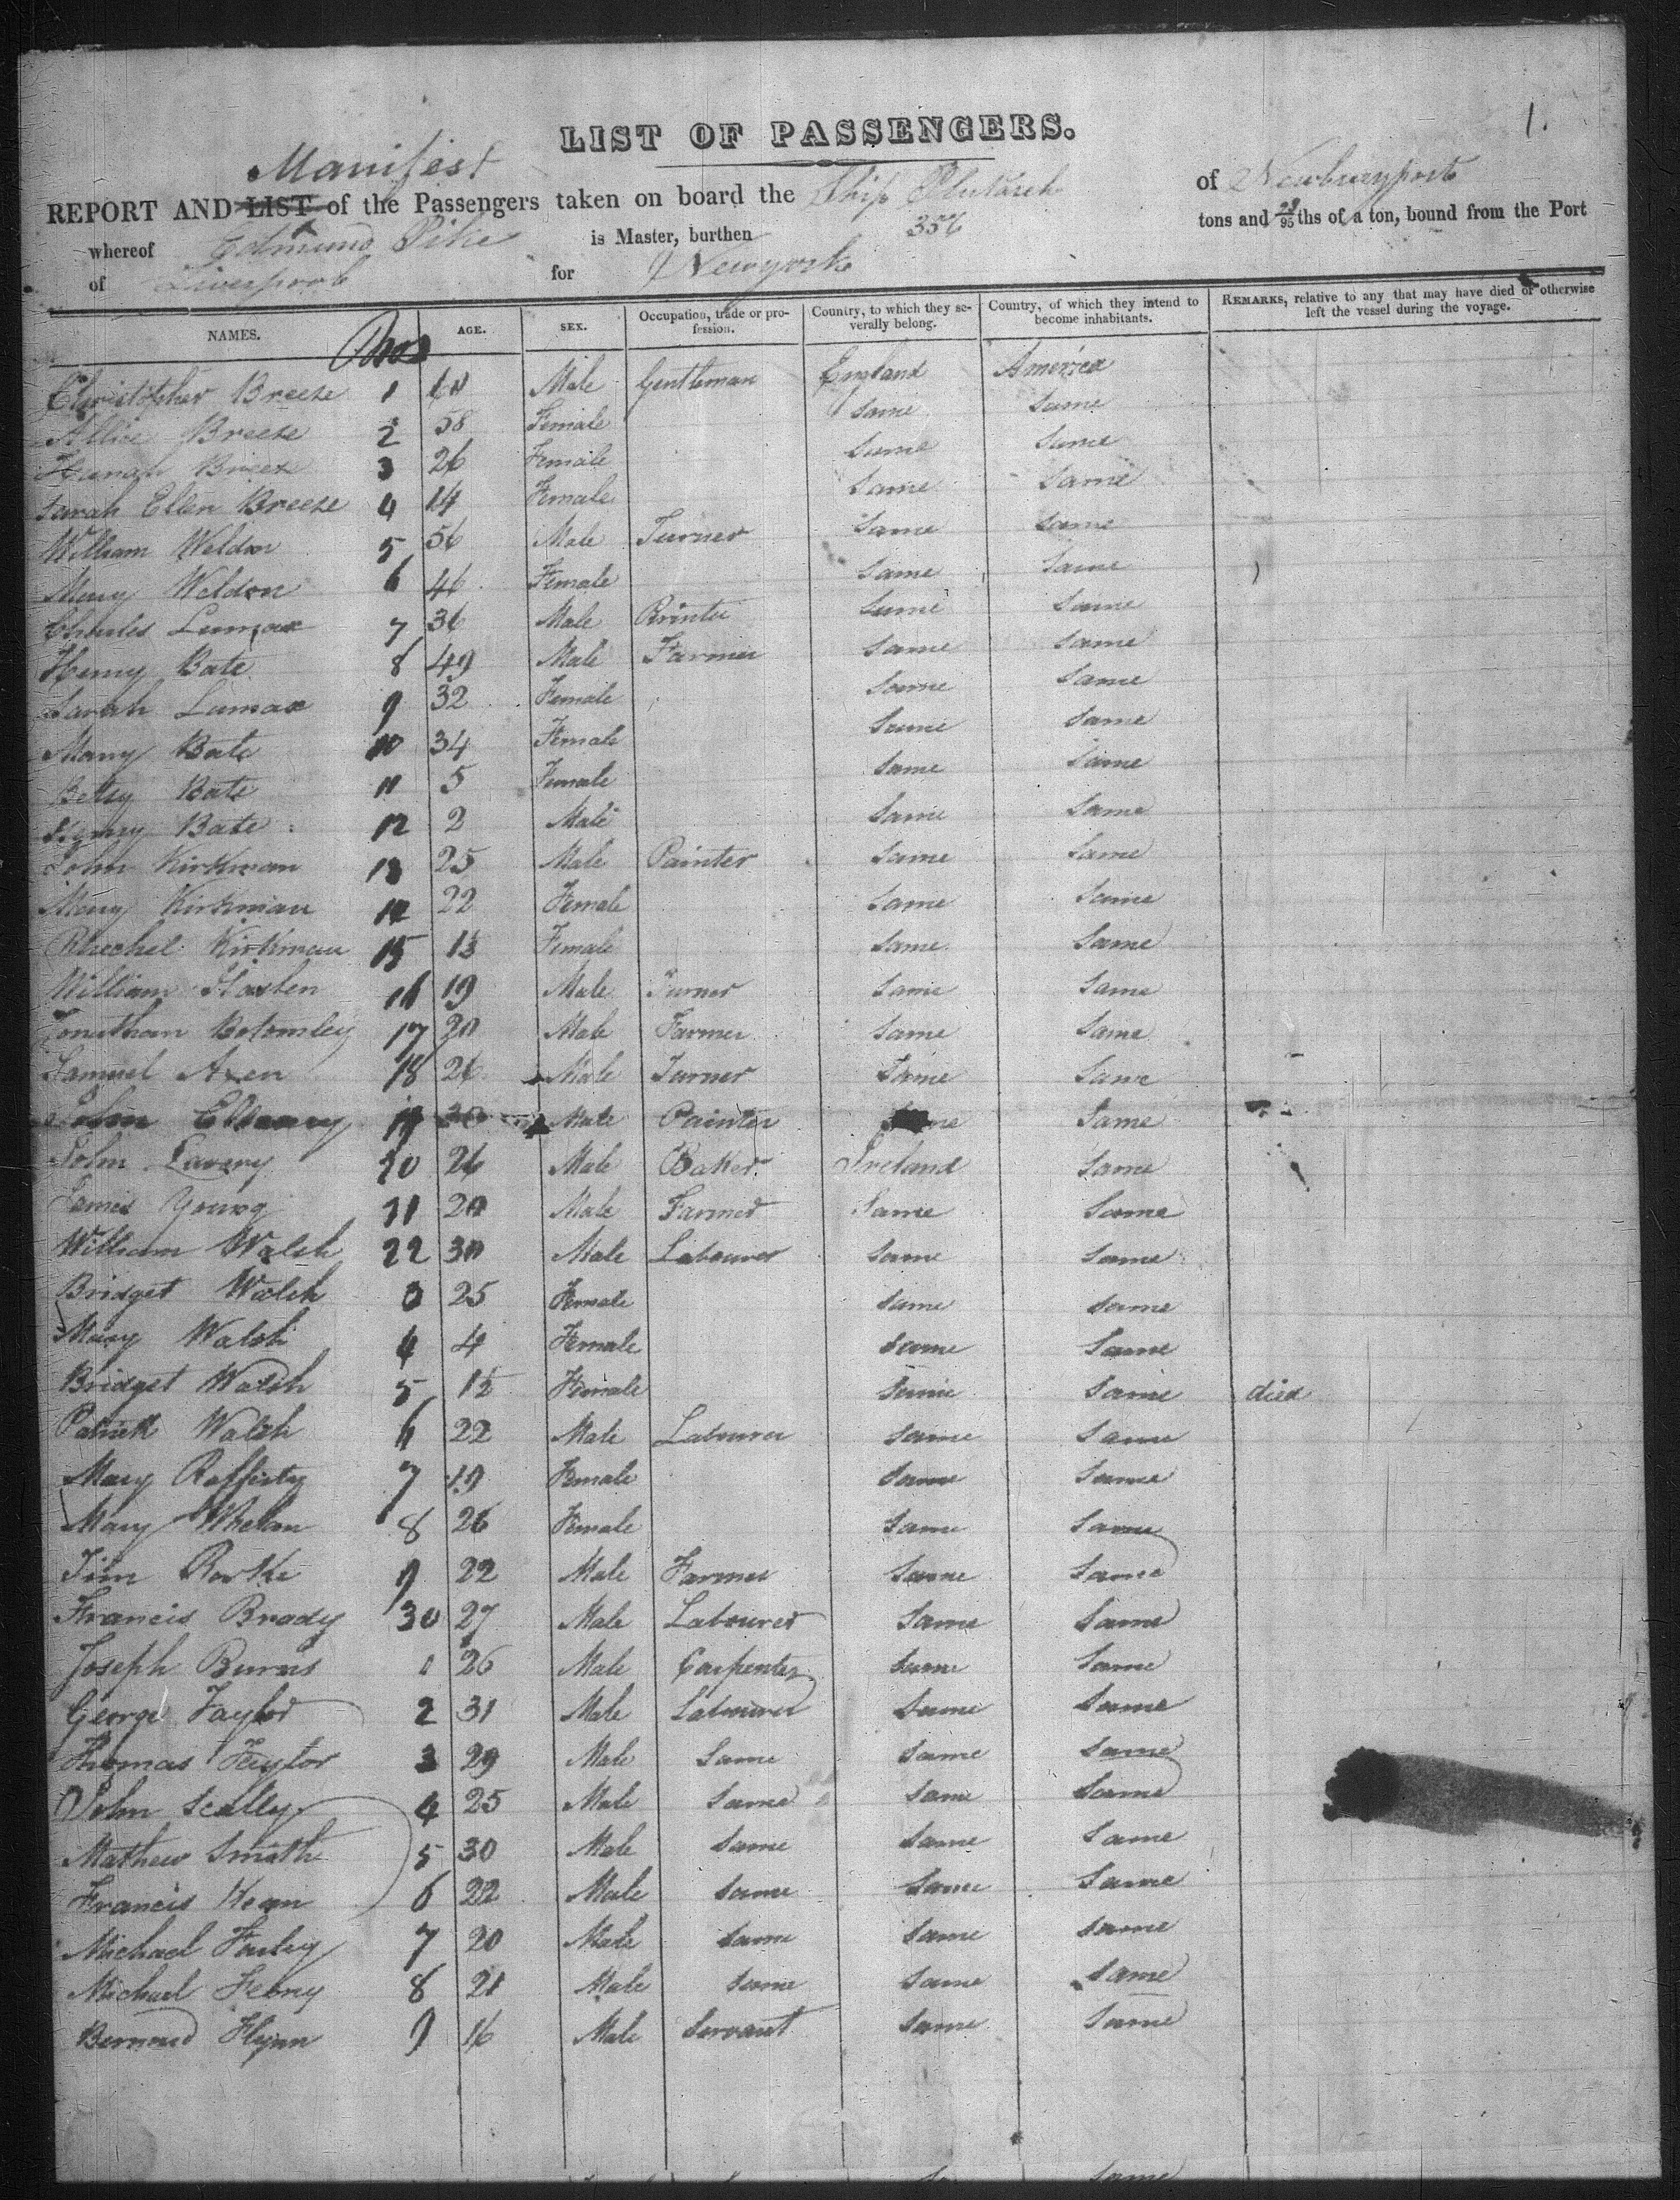 1.
LIST OF PASSENGERS.
Manifest
REPORT AND LIST of the Passengers taken on board the Ship Plutarch of Newburyport
whereof Edmund Pike is Master, burthen 356 tons and 28/95 ths of a ton, bound from the Port
of Liverpool for Newyork
NAMES. AGE. SEX. Occupation, trade or profession. Country, to which they severally belong. Country, of which they intend to become inhabitants. REMARKS, relative to any that may have died or otherwise left the vessel during the voyage.
Christopher Breeze 1 60 Male Gentleman England America
Allice Breeze 2 58 Female Same Same
Hanah Breeze 3 26 Female Same Same
Sarah Ellen Breeze 4 14 Female Same Same
William Weldon 5 56 Male Turner Same Same
Mary Weldon 6 46 Female Same Same
Charles Lumax 7 36 Male Printer Same Same
Henry Bate 8 49 Male Farmer Same Same
Sarah Lumax 9 32 Female Same Same
Mary Bate 10 34 Female Same Same
Betsy Bate 11 5 Female Same Same
Henry Bate 12 2 Male Same Same
John Kirkman 13 25 Male Painter Same Same
Mary Kirkman 14 22 Female Same Same
Rhechel Kirkman 15 13 Female Same Same
William 16 19 Male Turner Same Same
Jonathan Botomley 17 20 Male Farmer Same Same
Samuel Axen 18 26 Male Turner Same Same
John 19 30 Male Painter Same Same
John Lavery 20 26 Male Baker Ireland Same
James Young 21 20 Male Farmer Same Same
William Walsh 22 30 Male Labourer Same Same
Bridget Walsh 3 25 Female Same Same
Mary Walsh 4 4 Female Same Same
Bridget Walsh 5 1½ Female Same Same died
Patrick Walsh 6 22 Male Labourer Same Same
Mary Rafferty 7 19 Female Same Same
Mary Whelan 8 26 Female Same Same
Tim Rorke 9 22 Male Farmer Same Same
Francis Brady 30 27 Male Labourer Same Same
Joseph Burns 1 26 Male Carpenter Same Same
George Taylor 2 31 Male Labourer Same Same
Thomas Taylor 3 29 Male Same Same Same
John Scally 4 25 Male Same Same Same
Mathew Smith 5 30 Male Same Same Same
Francis Kean 6 22 Male Same Same Same
Michael Farley 7 20 Male Same Same Same
Michael Feeny 8 21 Male Same Same Same
Bernard Flynn 9 16 Male Servant Same Same
Same